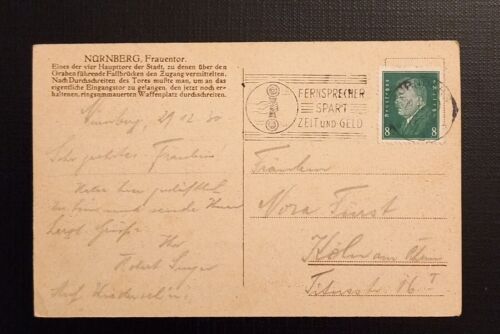 NÜRNBERG, Frauentor.
Eines der vier Haupttore der Stadt, zu denen über den
Graben führende Fallbrücken den Zugang vermittelten.
Nach Durchschreiten des Tores mußte man, um an das
eigentliche Eingangstor zu gelangen, den jetzt noch er-
haltenen, ringsummauerten Waffenplatz durchschreiten.
FERNSPRECHER
SPART
ZEIT UND GELD
8 8
Nürnberg, 29.12.30
Sehr geehrtes Fräulein
hier
sende Ihnen
herzl. Grüße
Ihr
Robert
Auf Wiedersehn!
Fräulein
Nora Fürst
Köln am Rhein
Titusstr. 16 I